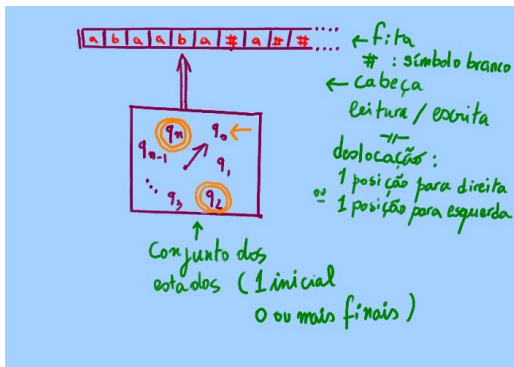 a b a a b a # a # # ....
← fita
# : símbolo branco
← cabeça
leitura / escrita
-//-
deslocação :
1 posição para direita
ou 1 posição para esquerda
qn q0 ←
qn-1 q1
... q3 q2
↑
Conjunto dos
estados ( 1 inicial
0 ou mais finais )